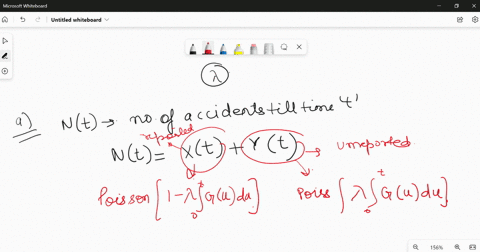 Microsoft Whiteboard
Untitled whiteboard
λ
a) N(t) → no. of accidents till time 't'
reported
N(t) = X(t) + Y(t) → unreported
Poisson [1-λ∫₀ᵗG(u)du] Poiss [λ∫₀ᵗG(u)du]
156%